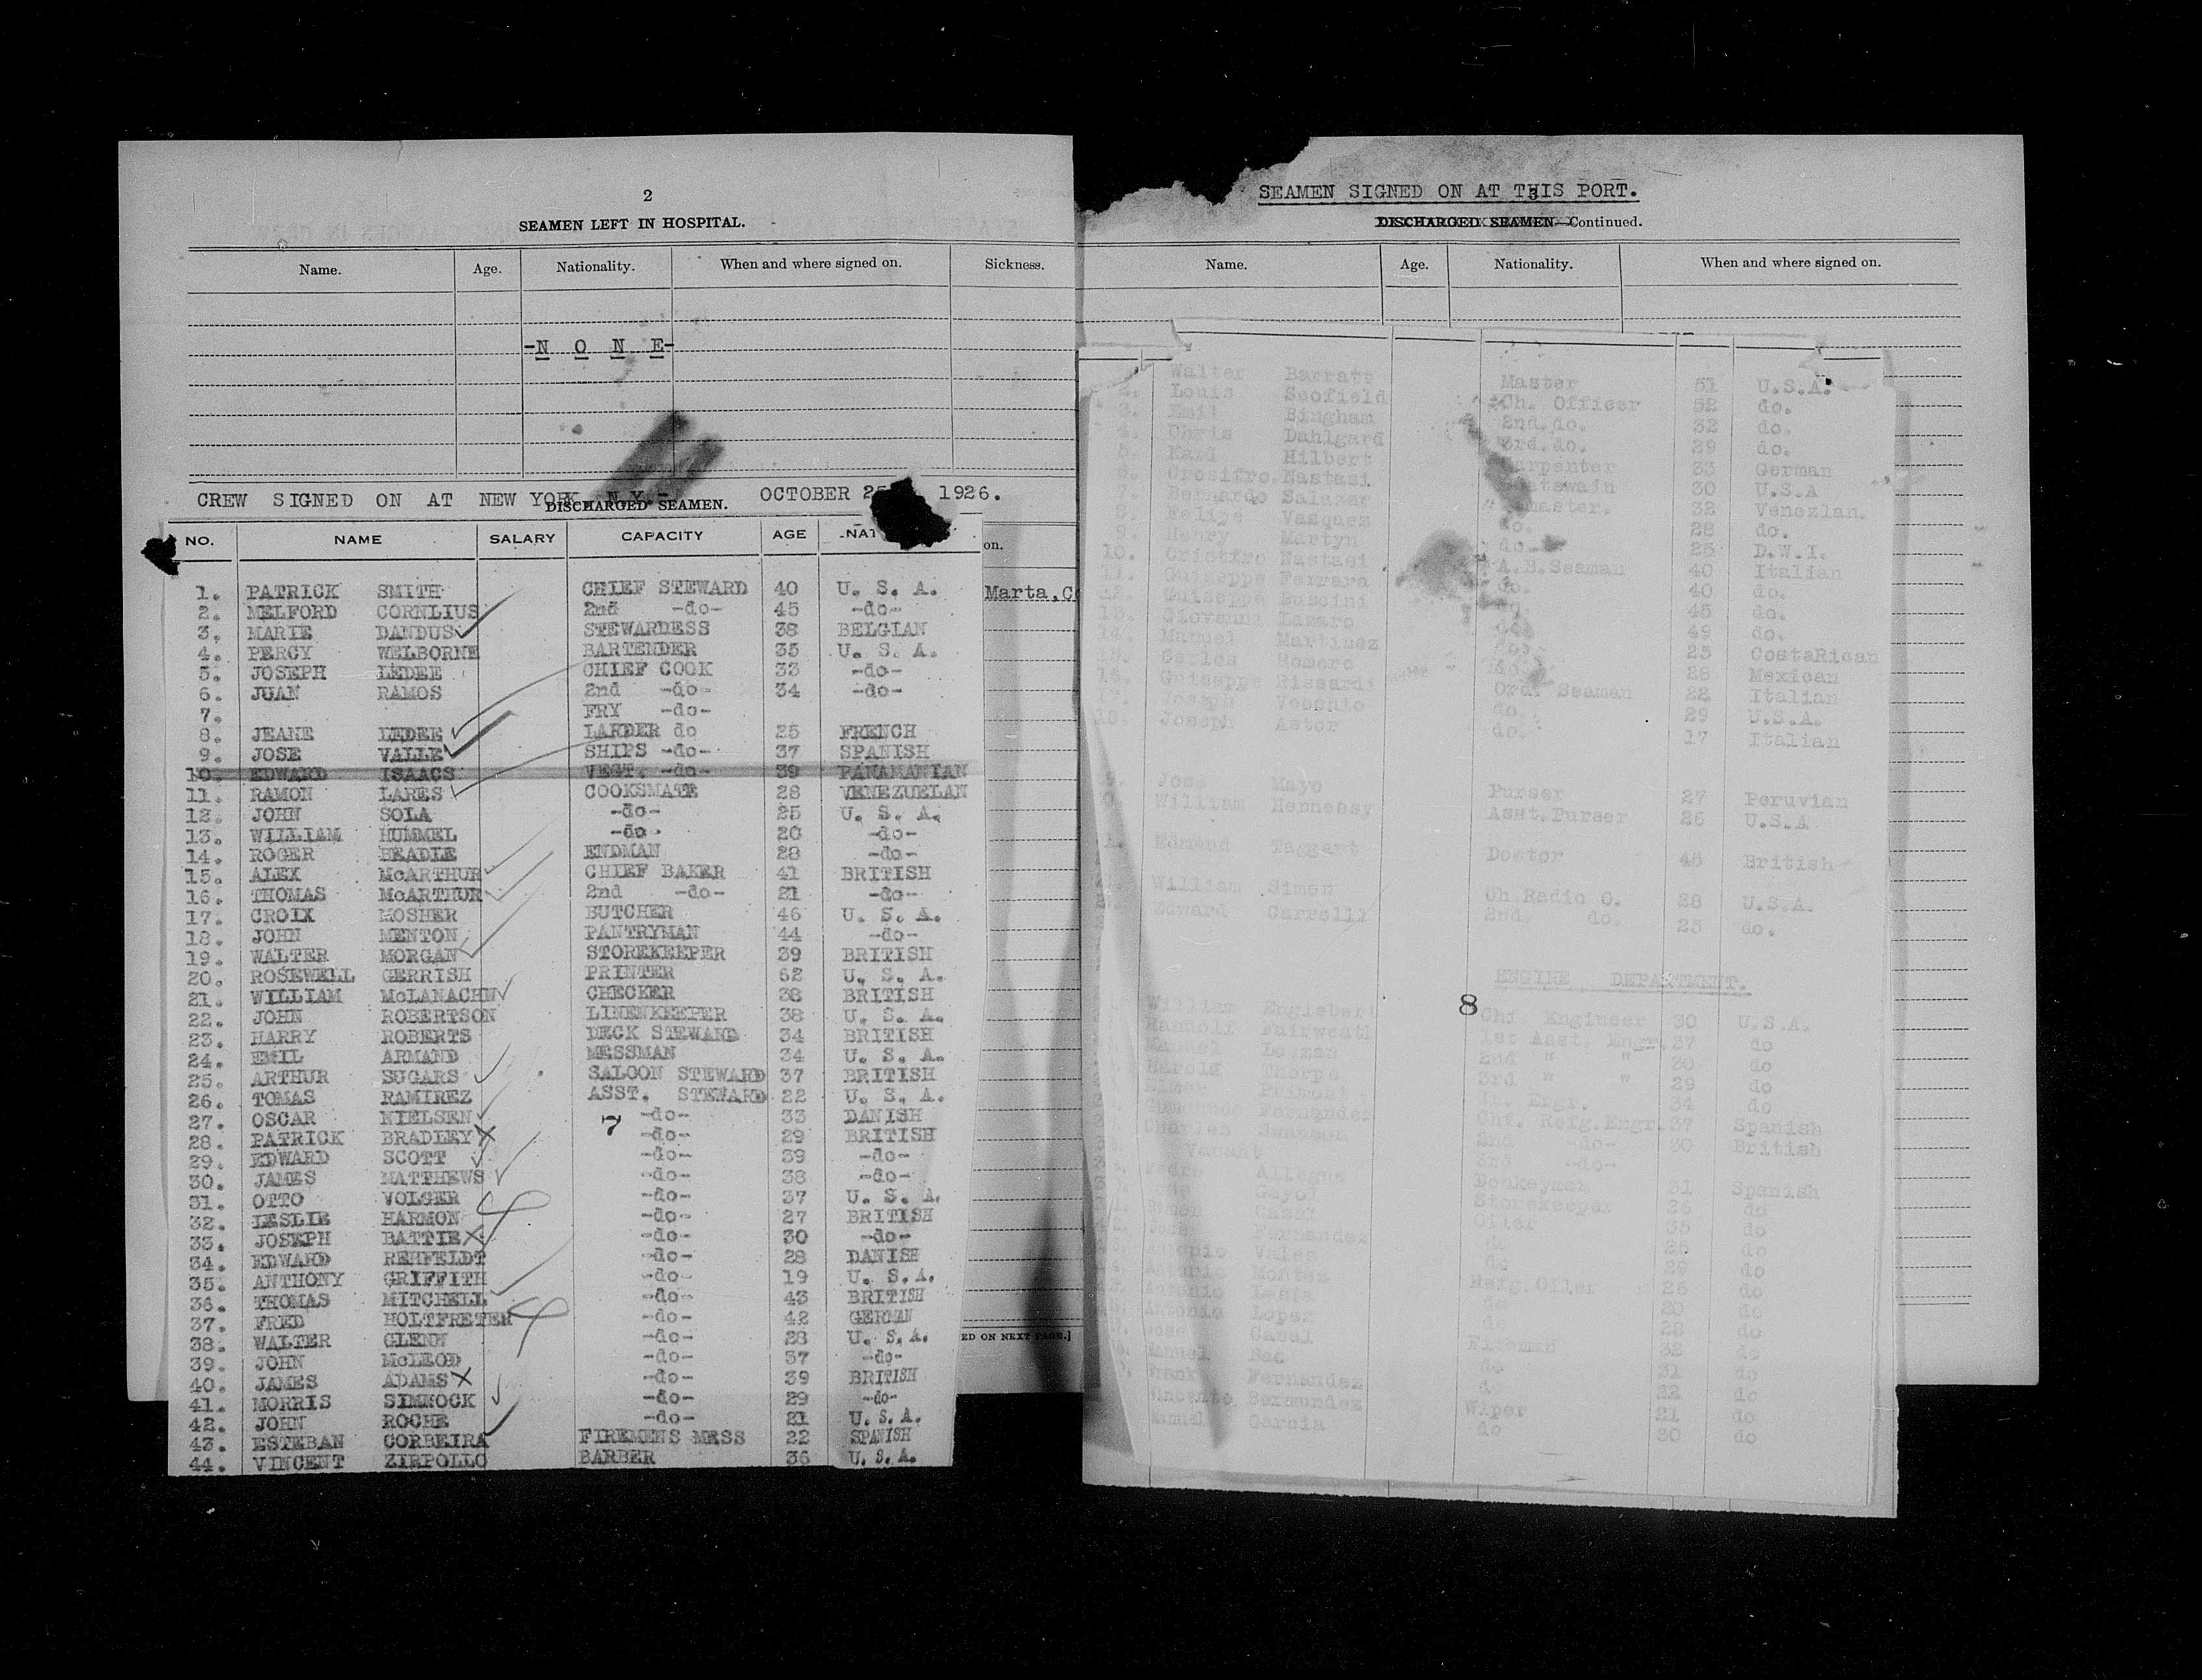 2
SEAMEN LEFT IN HOSPITAL.
Name. Age. Nationality. When and where signed on. Sickness.
-N O N E-
CREW SIGNED ON AT NEW YORK N.Y.- OCTOBER 25 1926.
DISCHARGED SEAMEN.
NO. NAME SALARY CAPACITY AGE NAT
on.
1. PATRICK SMITH CHIEF STEWARD 40 U. S. A.
Marta.C
2. MELFORD CORNLIUS 2nd -do- 45 -do-
3. MARIE DANDUS STEWARDESS 38 BELGIAN
4. PERCY WELBORNE BARTENDER 35 U. S. A.
5. JOSEPH LEDEE CHIEF COOK 33 -do-
6. JUAN RAMOS 2nd -do- 34 -do-
7. FRY -do-
8. JEANE LEDEE LARDER do 25 FRENCH
9. JOSE VALLE SHIPS -do- 37 SPANISH
10. EDWARD ISAACS VEGT. -do- 39 PANAMANIAN
11. RAMON LARES COOKSMATE 28 VENEZUELAN
12. JOHN SOLA -do- 25 U. S. A.
13. WILLIAM HUMMEL -do- 20 -do-
14. ROGER BEADLE ENDMAN 28 -do-
15. ALEX McARTHUR CHIEF BAKER 41 BRITISH
16. THOMAS McARTHUR 2nd -do- 21 -do-
17. CROIX MOSHER BUTCHER 46 U. S. A.
18. JOHN MENTON PANTRYMAN 44 -do-
19. WALTER MORGAN STOREKEEPER 39 BRITISH
20. ROSEWELL GERRISH PRINTER 62 U. S. A.
21. WILLIAM McLANACHN CHECKER 38 BRITISH
22. JOHN ROBERTSON LINENKEEPER 38 U. S. A.
23. HARRY ROBERTS DECK STEWARD 34 BRITISH
24. EMIL ARMAND MESSMAN 34 U. S. A.
25. ARTHUR SUGARS SALOON STEWARD 37 BRITISH
26. TOMAS RAMIREZ ASST. STEWARD 22 U. S. A.
27. OSCAR NIELSEN -do- 33 DANISH
7
28. PATRICK BRADLEY -do- 29 BRITISH
29. EDWARD SCOTT -do- 39 -do-
30. JAMES MATTHEWS -do- 38 -do-
31. OTTO VOLGER -do- 37 U. S. A.
32. LESLIE HARMON -do- 27 BRITISH
33. JOSEPH BATTIE -do- 30 -do-
34. EDWARD REHFELDT -do- 28 DANISH
35. ANTHONY GRIFFITH -do- 19 U. S. A.
36. THOMAS MITCHELL -do- 43 BRITISH
37. FRED HOLTFRETER -do- 42 GERMAN
38. WALTER GLENN -do- 28 U. S. A.
39. JOHN McLEOD -do- 37 -do-
40. JAMES ADAMS -do- 39 BRITISH
41. MORRIS SIMNOCK -do- 29 -do-
42. JOHN ROCHE -do- 21 U. S. A.
43. ESTEBAN CORBEIRA FIREMENS MESS 22 SPANISH
44. VINCENT ZIRPOLLO BARBER 36 U. S. A.
ED ON NEXT PAGE.]
3
SEAMEN SIGNED ON AT THIS PORT.
DISCHARGED SEAMEN—Continued.
Name. Age. Nationality. When and where signed on.
Walter Barratt Master 51 U.S.A.
2. Louis Scofield Ch. Officer 52 do.
3. Emil Bingham 2nd.do. 32 do.
4. Chris Dahlgard 3rd.do. 29 do.
5. Hilbert Carpenter 33 German
6. Nastasi Boatswain 30 U.S.A
Bernardo Salazar master. 32 Venezlan.
Felipe Vasquez do. 28 do.
9. Henry Martyn do. 23 D.W.I.
10. Nastasi A.B.Seaman 40 Italian
11. Guiseppe Ferrara do. 40 do.
Guiseppe 45 do.
Giovanni Lazaro 49 do.
14. Manuel Martinez do. 23 CostaRican
Carlos Romero do. 28 Mexican
16. Guiseppe Ord. Seaman 22 Italian
Joseph Vecchio do. 29 U.S.A.
Joseph Astor do. 17 Italian
Jose Mayo Purser 27 Peruvian
William Hennessy Asst.Purser 26 U.S.A
Edmond Taggart Doctor 45 British
William Simon Ch.Radio O. 28 U.S.A.
Edward Carroll 2nd. do. 25 do.
ENGINE DEPARTMENT.
8
William Englebart Chf. Engineer 30 U.S.A.
Fairweath 1st Asst. Engr. 37 do
Manuel 2nd " " 30 do
Harold Thorpe 3rd " " 29 do
Engr. 34 do
Fernandez Chf. Refg.Engr. 37 Spanish
Swanson 2nd -do- 30 British
Vacant 3rd -do-
Allegue Donkeyman 31 Spanish
Gayol Storekeeper 26 do
Casal Oiler 35 do
Jose Fernandez do
29 do
Refg.Oiler 26 do
Lopez 20 do
Jose Casal 28 do
Manuel Fireman 32 do
Frank Fernandez do 31 do
Vincente Bermundez do 22 do
Manuel Garcia Wiper 21 do
do 30 do